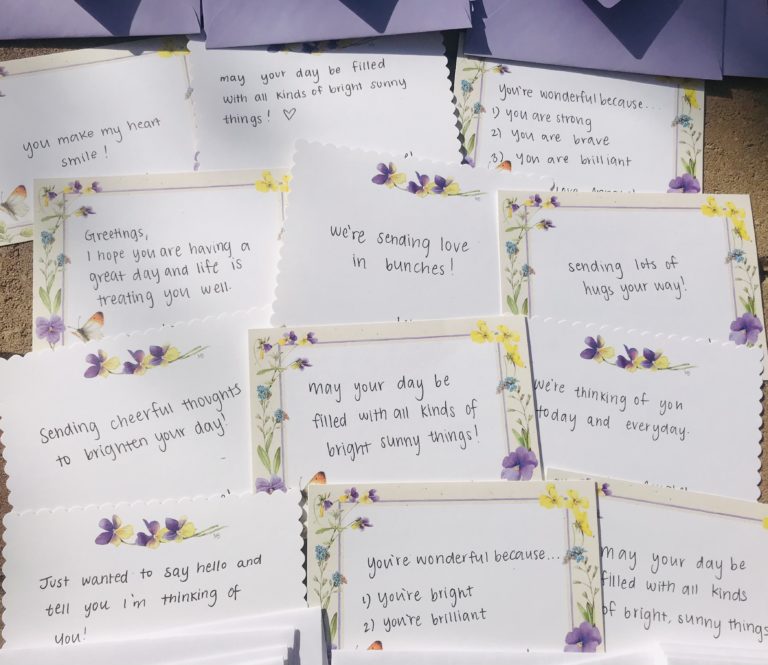 you make my heart
smile!
may your day be filled
with all kinds of bright sunny
things! ♡
you're wonderful because...
1) you are strong
2) you are brave
3) you are brilliant
Greetings,
I hope you are having a
great day and life is
treating you well.
we're sending love
in bunches!
sending lots of
hugs your way!
Sending cheerful thoughts
to brighten your day!
may your day be
filled with all kinds of
bright sunny things!
we're thinking of you
today and everyday.
Just wanted to say hello and
tell you i'm thinking of
you!
you're wonderful because...
1) you're bright
2) you're brilliant
may your day be
filled with all kinds
of bright, sunny things